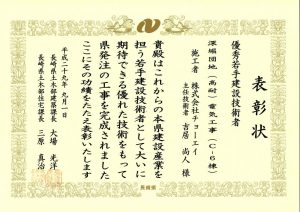 表彰状
優秀若手建設技術者
深堀団地(高耐)電気工事(C-6棟)
施工者 株式会社チョーエイ
主任技術者 吉居 尚人 様
貴殿はこれからの本県建設産業を
担う若手建設技術者として大いに
期待できる優れた技術をもって
県発注の工事を完成されました
ここにその功績をたたえ表彰いたします
平成二十九年九月一日
長崎県土木部建築課長 大場 光洋
長崎県土木部住宅課長 三原 真治
長崎県